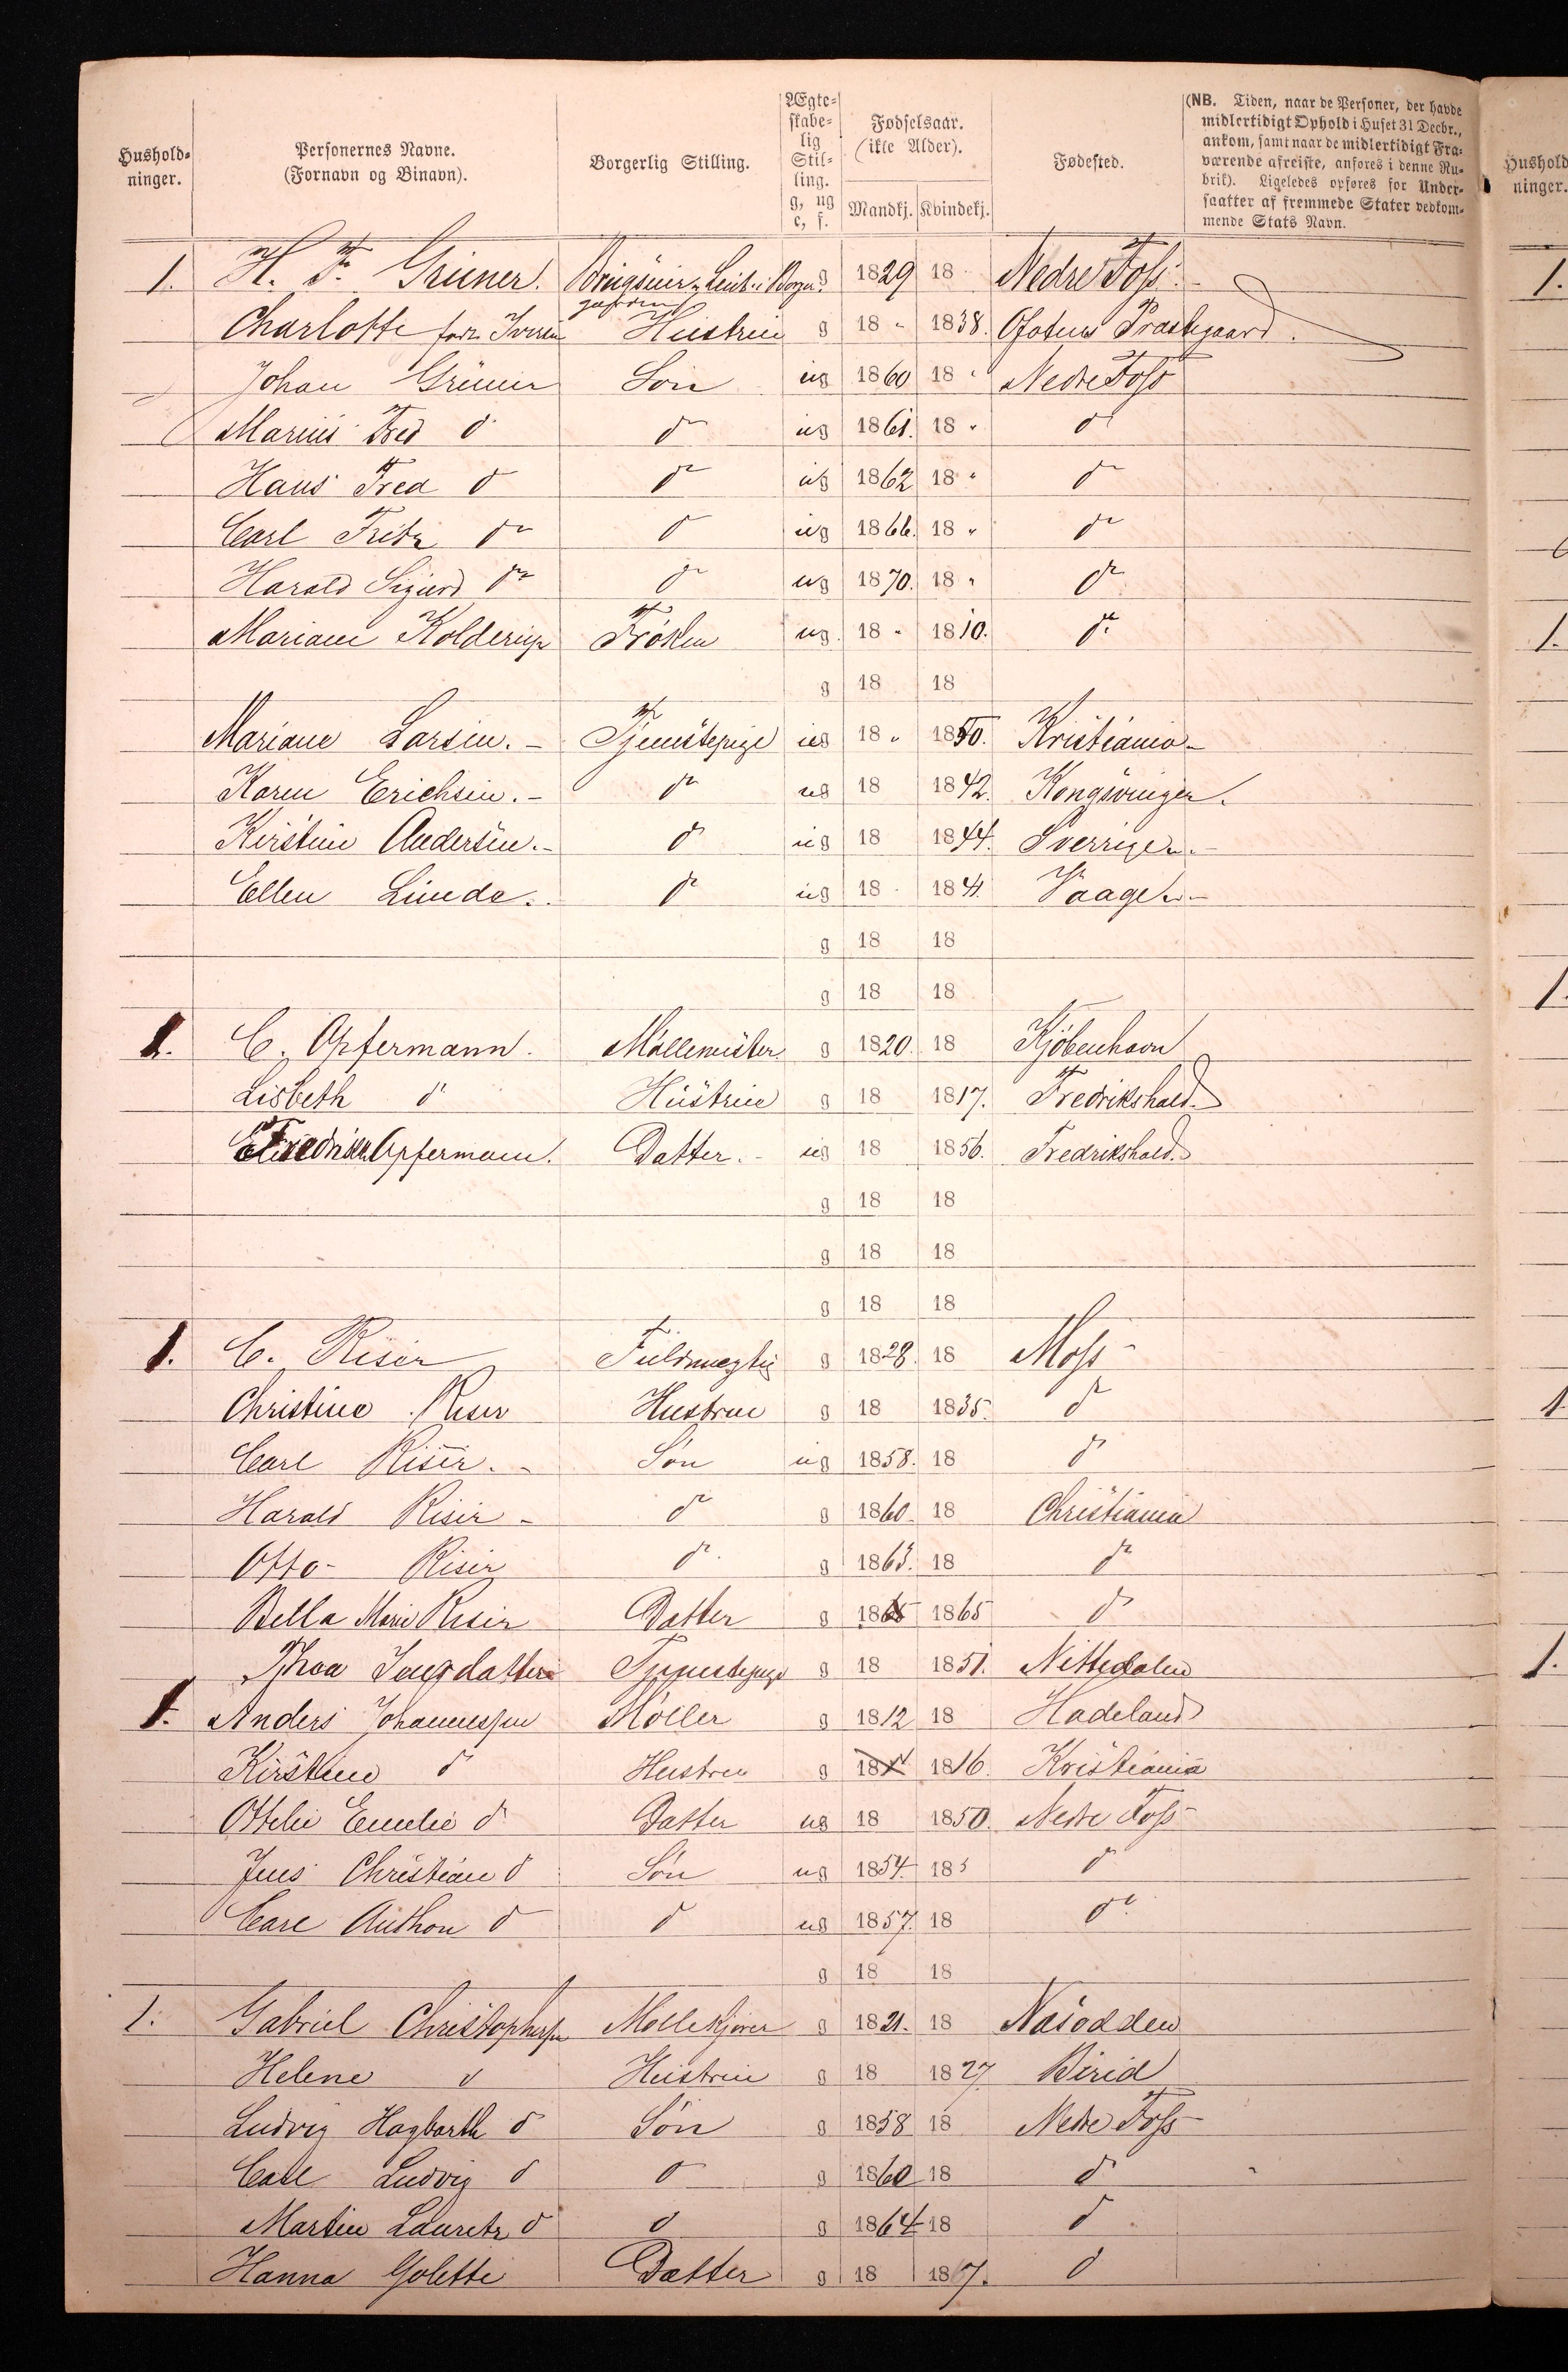 Hushold-
ninger.
Personernes Navne.
(Fornavn og Binavn).
Borgerlig Stilling.
Ægte-
skabe-
lig
Stil-
ling.
g, ug
e, f.
Fødselsaar.
(ikke Alder).
Mandkj. Kvindekj.
Fødested.
(NB. Tiden, naar de Personer, der havde
midlertidigt Ophold i Huset 31 Decbr.,
ankom, samt naar de midlertidigt Fra-
værende afreiste, anføres i denne Ru-
brik). Ligeledes opføres for Under-
saatter af fremmede Stater vedkom-
mende Stats Navn.
Hushold
ninger.
1. H. F. Grüner. g 1829 18 Nedre Foss 1.
Charlotte Hustrue g 18 " 1838. Ofotens Præstegaard.
Johan Grüner Søn ug 1860 18 " Nedre Foss
Marius Fred do do ug 1861. 18 " do
Hans Fred do do ug 1862 18 " do
Carl Fritz do do ug 1866. 18 " do
Harald Sigurd do do ug 1870. 18 " do
Mariane Kolderup Frøken ug. 18 " 1810. do 1.
g 18 18
Mariane Larsen. - Tjenstepige ug 18 " 1850. Kristiania -
Karen Erichsen. - do ug 18 1842. Kongsvinger.
Kirstine Andersen. - do ug 18 1844. Sverrige. -
Ellen Lunde. do ug 18 Vaage. -
g 18 18
g 18 18 1.
1. C. Opfermann. Møllemester g 1820. 18 Kjøbenhavn
Lisbeth do Hustrue g 18 1817. Fredrikshald
Opfermann. Datter. - ug 18 1856. Fredrikshald.
g 18 18
g 18 18
g 18 18
1. C. Riser Fuldmegtig g 1828. 18 Moss -
Christine Riser Hustrue g 18 1835. do 1
Carl Riser. - Søn ug 1858. 18 do
Harald Riser - do g 1860. 18 Christiania
Otto - Riser do g 1863. 18 do
Bella Marie Riser Datter g 1865 1865 do
Tjenestepige g 18 1851. Nittedalen 1.
1. Anders Johannessen Møller g 1812 18 Hadeland
Kirstine do Hustrue g 18 1816. Kristiania
Ottelie Emelie do Datter ug 18 1850. Nedre Foss -
Jens Christian do Søn ug 1854. 18 do
Carl Anthon do do ug 1857. 18 do
g 18 18
1. Gabriel Christophersen Møllekjører g 1821. 18 Næsodden
Helene do Hustrue g 18 1827. Birid
Ludvig Hagbarth do Søn g 1858 18 Nedre Foss -
Carl Ludvig do do g 1860 18 do
Martin Lauretz do do g 1864 18 do
Hanna Golette Datter g 18 do